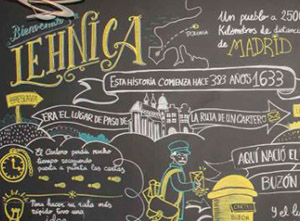 Bienvenido
LEHNICA
POLONIA
Un pueblo a 2500
Kilómetros de distancia
de MADRID
ESTA HISTORIA COMIENZA HACE 383 AÑOS 1633
ERA EL LUGAR DE PASO DE
LA RUTA DE UN CARTERO
El Cartero perdía mucho
tiempo recorriendo
puerta a puerta las casas
Para hacer su ruta más
rápido tuvo una
AQUÍ NACIÓ EL
BUZÓN
BUZÓN
Y el